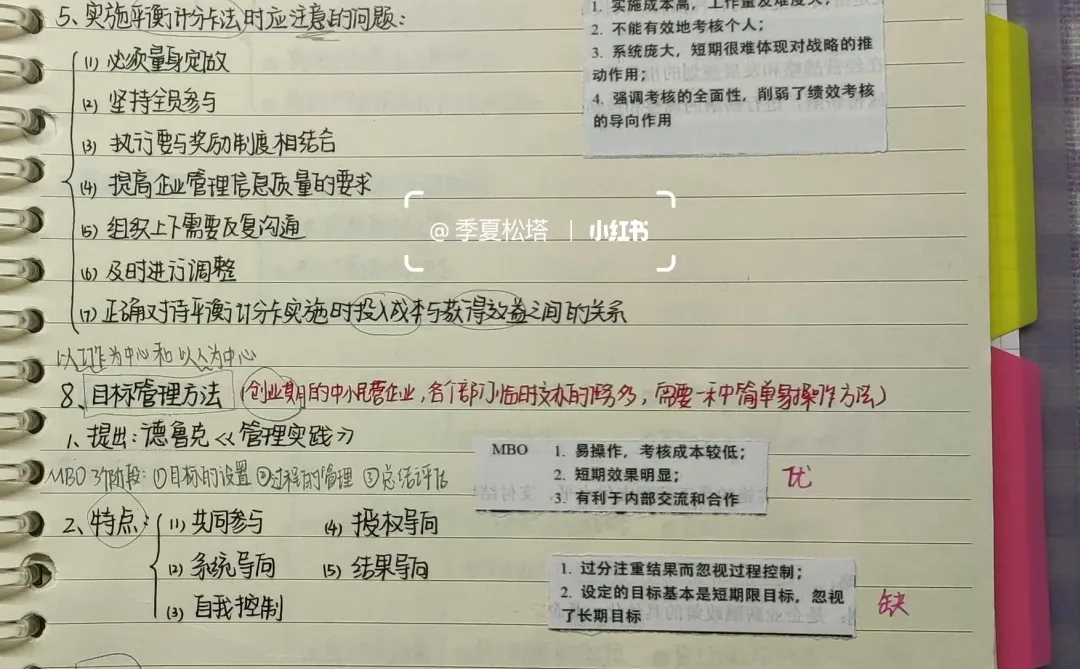 5、实施平衡计分卡法时应注意的问题：
(1) 必须量身定做
(2) 坚持全员参与
(3) 执行要与奖励制度相结合
(4) 提高企业管理信息质量的要求
(5) 组织上下需要反复沟通
(6) 及时进行调整
(7) 正确对待平衡计分卡实施时投入成本与获得效益之间的关系
1. 实施成本高，工作量及难度大；
2. 不能有效地考核个人；
3. 系统庞大，短期很难体现对战略的推
动作用；
4. 强调考核的全面性，削弱了绩效考核
的导向作用
@季夏松塔 | 小红书
以工作为中心和以人为中心
8、目标管理方法（创业期的中小民营企业，各个部门临时交办的任务多，需要一种简单易操作方法）
1、提出：德鲁克《管理实践》
MBO 3个阶段：①目标的设置 ②过程的管理 ③总结评估
MBO 1. 易操作，考核成本较低；
2. 短期效果明显；
3. 有利于内部交流和合作
优
2、特点：(1) 共同参与 (4) 授权导向
(2) 系统导向 (5) 结果导向
(3) 自我控制
1. 过分注重结果而忽视过程控制；
2. 设定的目标基本是短期限目标，忽视
了长期目标
缺